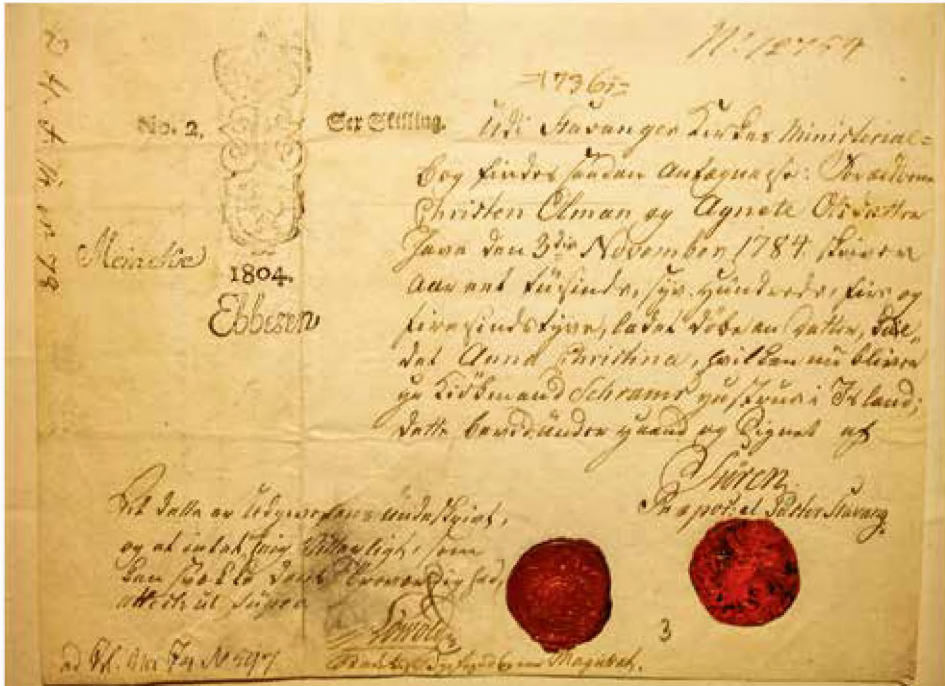 No 12754
=1736=
No. 2. Sex Skilling.
Udi Stavanger Kirkes Ministerial=
bog findes saadan Antegnelse: Forældrene
Christen Elman og Agnete Olsdatter
have den 3die November 1784 skriver
Aar et tusinde, syv hundrede, fiire og
firesindstyve, ladet døbe en Datter, kal„
det Anna Christina, hvilken nu bliver
Kiöbmand Schrams Hustrue i Island;
dette bevidner under Haand og Signet af
Meincke
1804.
Ebbesen
Sören
Præpos: et Pastor Stavang.
At dette er Udgiverens Underskrivt,
og at intet er mig vitterligt, som
kan svække dens Troværdighed,
attesterer
Magistrat.
3